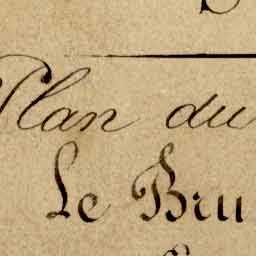 Plan du
Le Bru